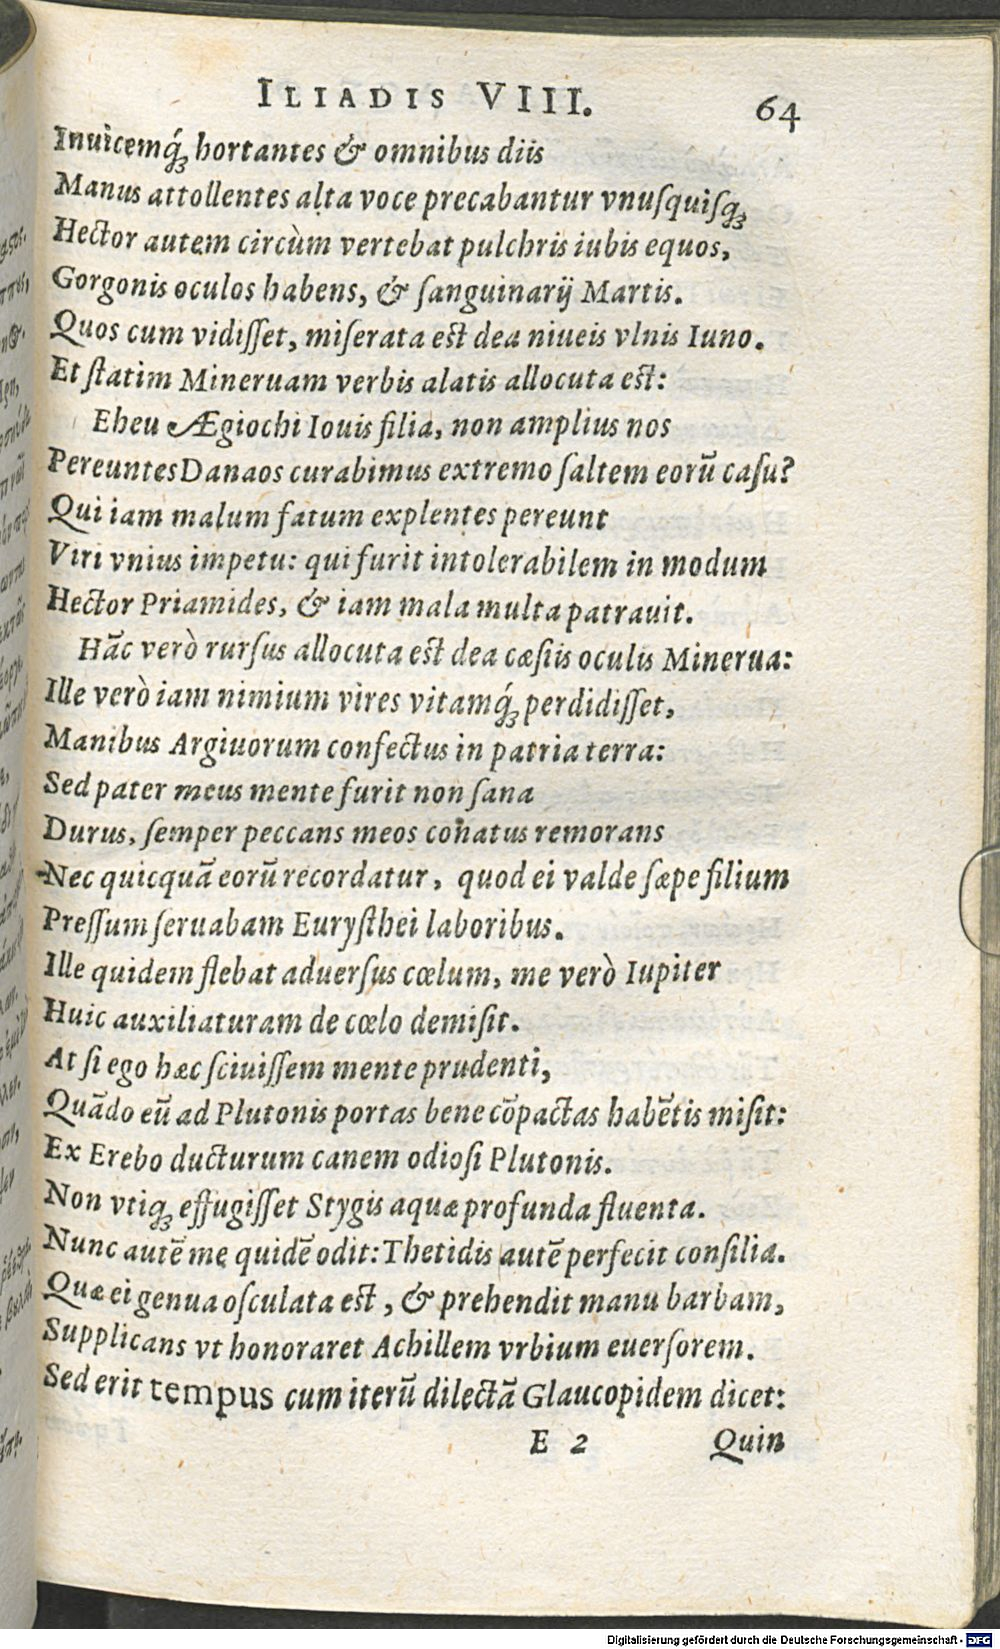 ILIADIS VIII. 64
Inuicemq́ꝫ hortantes & omnibus diis
Manus attollentes alta voce precabantur vnuſquiſqꝫ
Hector autem circùm vertebat pulchris iubis equos,
Gorgonis oculos habens, & ſanguinarij Martis.
Quos cum vidiſſet, miſerata eſt dea niueis vlnis Iuno.
Et ſtatim Mineruam verbis alatis allocuta eſt:
Eheu Ægiochi Iouis filia, non amplius nos
Pereuntes Danaos curabimus extremo ſaltem eorũ caſu?
Qui iam malum fatum explentes pereunt
Viri vnius impetu: qui furit intolerabilem in modum
Hector Priamides, & iam mala multa patrauit.
Hãc verò rurſus allocuta eſt dea cæſiis oculis Minerua:
Ille verò iam nimium vires vitamq́ꝫ perdidiſſet,
Manibus Argiuorum confectus in patria terra:
Sed pater meus mente furit non ſana
Durus, ſemper peccans meos conatus remorans
Nec quicquã eorũ recordatur, quod ei valde ſæpe filium
Preſſum ſeruabam Euryſthei laboribus.
Ille quidem flebat aduerſus cœlum, me verò Iupiter
Huic auxiliaturam de cœlo demiſit.
At ſi ego hæc ſciuiſſem mente prudenti,
Quãdo eũ ad Plutonis portas bene cõpactas habẽtis miſit:
Ex Erebo ducturum canem odioſi Plutonis.
Non vtiqꝫ effugiſſet Stygis aquæ profunda fluenta.
Nunc autẽ me quidẽ odit: Thetidis autẽ perfecit conſilia.
Quæ ei genua oſculata eſt, & prehendit manu barbam,
Supplicans vt honoraret Achillem vrbium euerſorem.
Sed erit tempus cum iterũ dilectã Glaucopidem dicet:
E 2 Quin
Digitalisierung gefördert durch die Deutsche Forschungsgemeinschaft - DFG